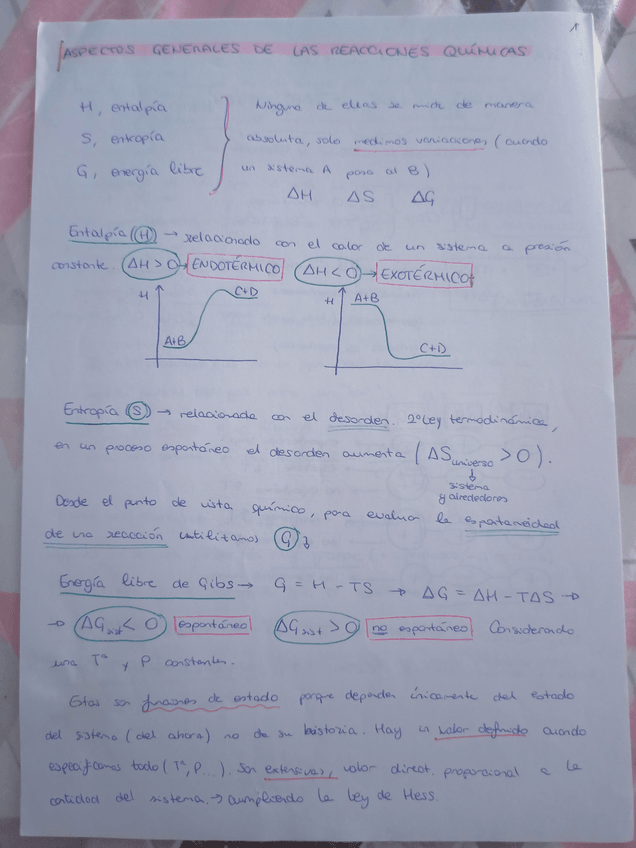 1
ASPECTOS GENERALES DE LAS REACCIONES QUÍMICAS
H, entalpía
S, entropía
G, energía libre
Ninguna de ellas se mide de manera
absoluta, solo medimos variaciones (cuando
un sistema A pasa al B)
ΔH ΔS ΔG
Entalpía (H) → relacionado con el calor de un sistema a presión
constante. ΔH > 0 → ENDOTÉRMICO ΔH < 0 → EXOTÉRMICO
H A+B C+D
H A+B C+D
Entropía (S) → relacionada con el desorden. 2º Ley termodinámica,
en un proceso espontáneo el desorden aumenta (ΔS universo > 0).
↓
sistema
y alrededores
Desde el punto de vista químico, para evaluar la espontaneidad
de una reacción utilizamos G ↓
Energía libre de Gibs → G = H - TS → ΔG = ΔH - TΔS →
→ ΔG sist < 0 espontáneo ΔG sist > 0 no espontáneo Considerando
una Tª y P constantes.
Estas son funciones de estado porque dependen únicamente del estado
del sistema (del ahora) no de su historia. Hay un valor definido cuando
especificamos todo (Tª, P...). Son extensivas, valor direct. proporcional a la
cantidad del sistema. → cumpliendo la Ley de Hess.